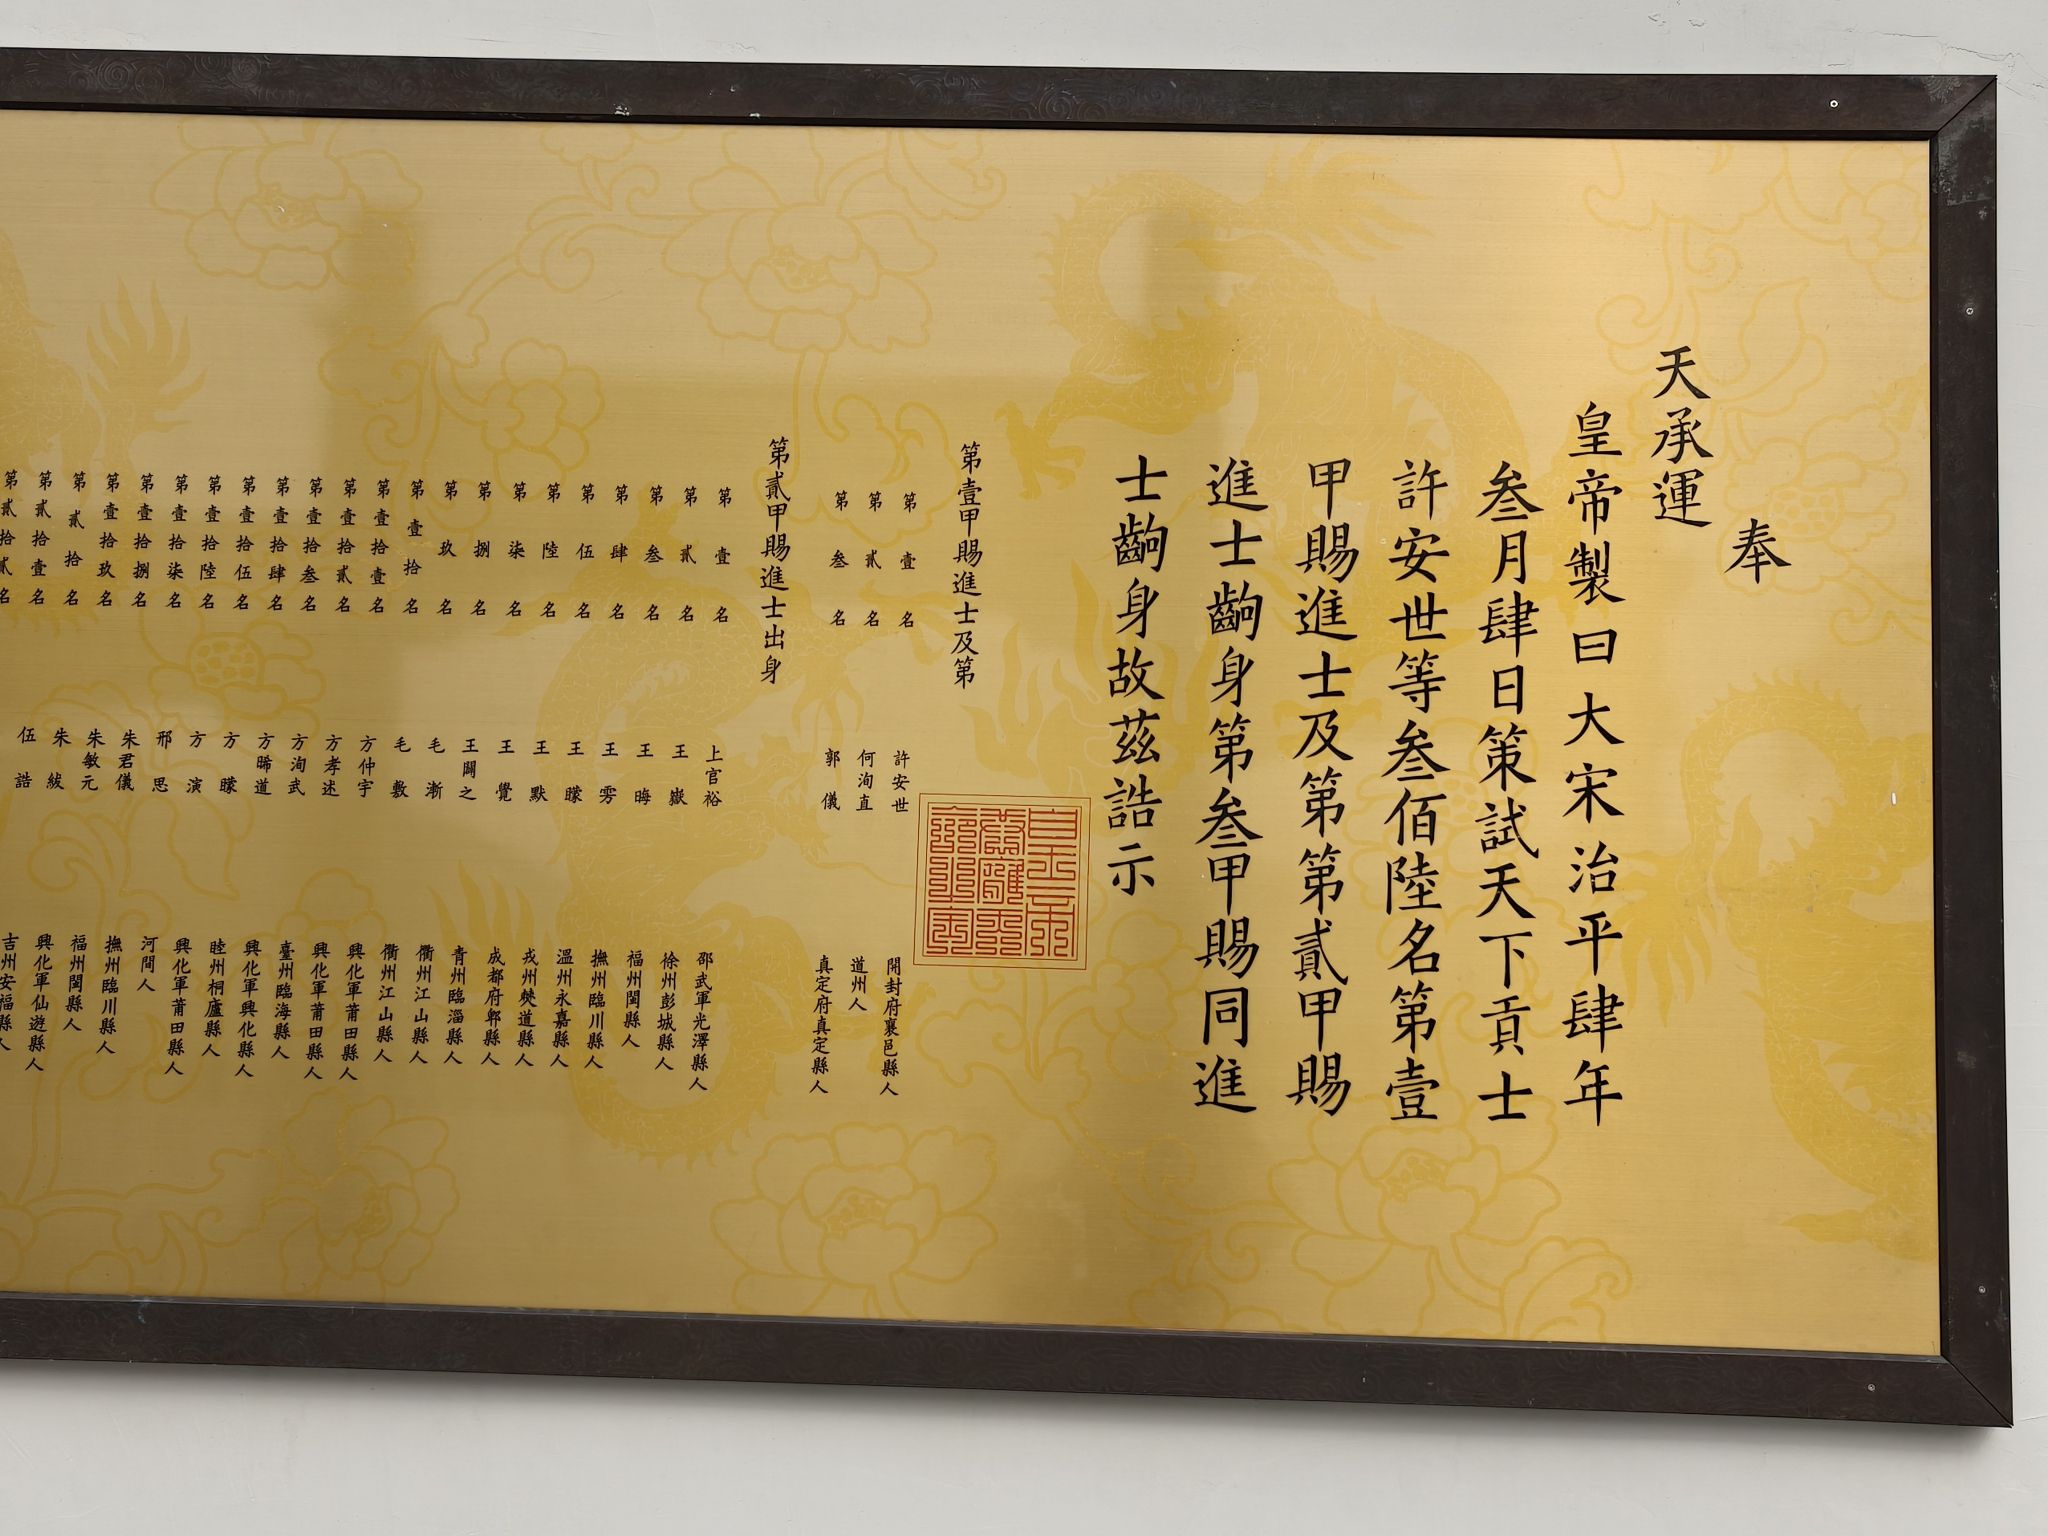 奉
天承運
皇帝製曰大宋治平肆年
叁月肆日策試天下貢士
許安世等叁佰陸名第壹
甲賜進士及第第貳甲賜
進士齣身第叁甲賜同進
士齣身故茲誥示
第壹甲賜進士及第
第壹名 許安世 開封府襄邑縣人
第貳名 何洵直 道州人
第叁名 郭儀 真定府真定縣人
第貳甲賜進士出身
第壹名 上官裕 邵武軍光澤縣人
第貳名 王嶽 徐州彭城縣人
第叁名 王晦 福州閩縣人
第肆名 王雱 撫州臨川縣人
第伍名 王矇 溫州永嘉縣人
第陸名 王默 戎州僰道縣人
第柒名 王覺 成都府郫縣人
第捌名 王闢之 青州臨淄縣人
第玖名 毛漸 衢州江山縣人
第壹拾名 毛敷 衢州江山縣人
第壹拾壹名 方仲宇 興化軍莆田縣人
第壹拾貳名 方孝述 興化軍莆田縣人
第壹拾叁名 方洵武 臺州臨海縣人
第壹拾肆名 方晞道 興化軍興化縣人
第壹拾伍名 方矇 睦州桐廬縣人
第壹拾陸名 方演 興化軍莆田縣人
第壹拾柒名 邢思 河間人
第壹拾捌名 朱君儀 撫州臨川縣人
第壹拾玖名 朱敏元 福州閩縣人
第貳拾名 朱紱 興化軍仙遊縣人
第貳拾壹名 伍誥 吉州安福縣人
第貳拾貳名